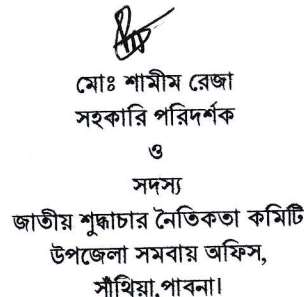 মোঃ শামীম রেজা
সহকারি পরিদর্শক
ও
সদস্য
জাতীয় শুদ্ধাচার নৈতিকতা কমিটি
উপজেলা সমবায় অফিস,
সাঁথিয়া,পাবনা।